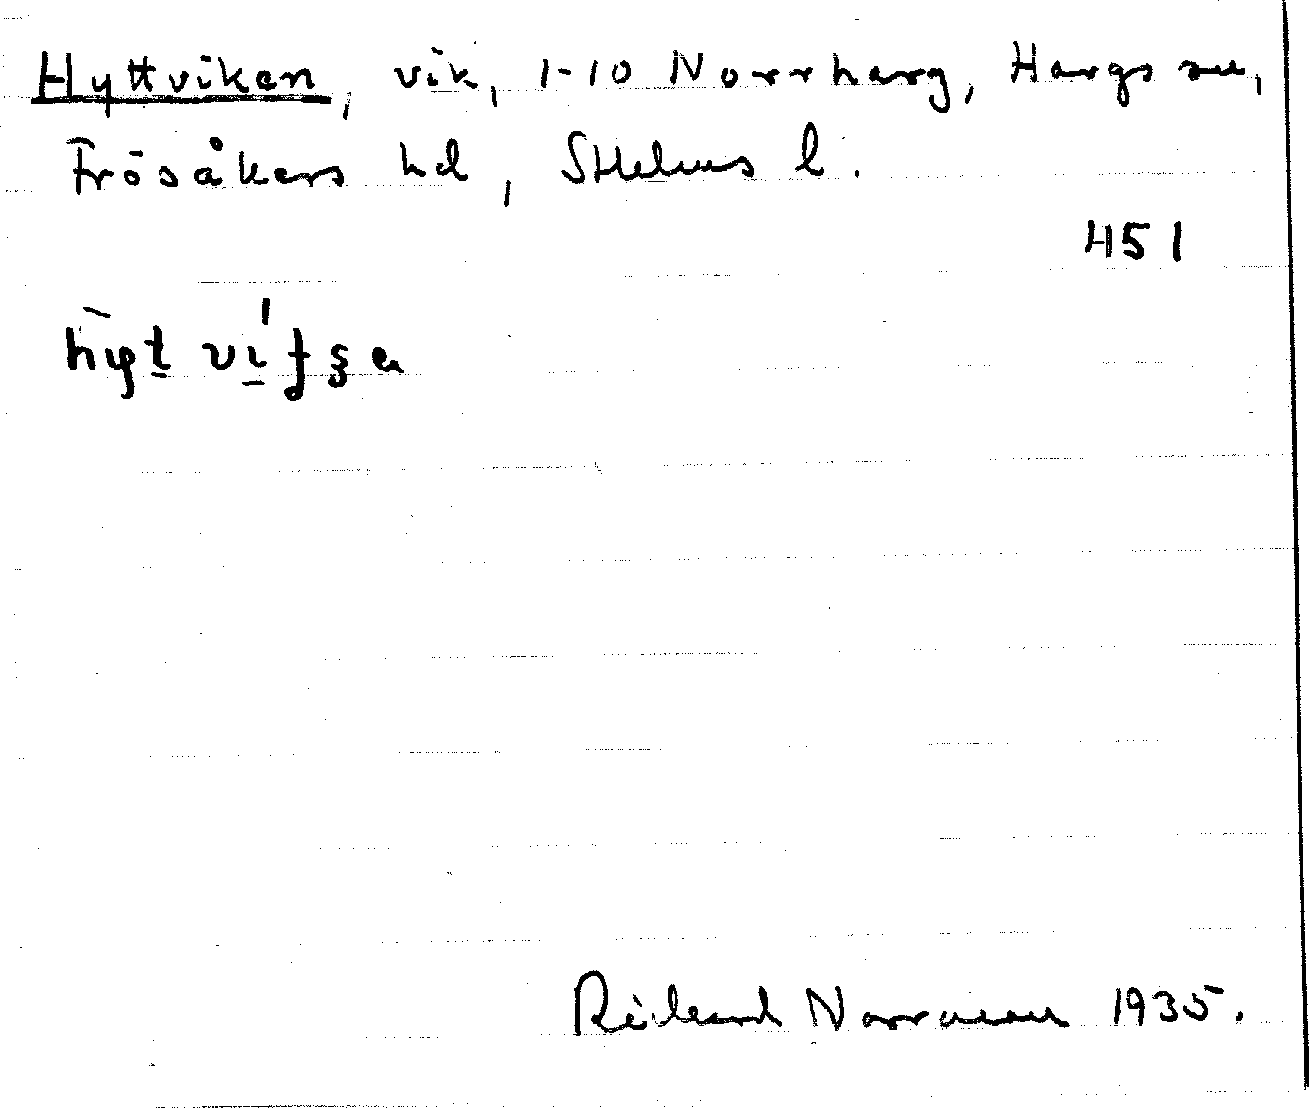 Hyttviken, vik, 1-10 Norrharg, Hargs sn,
Frösåkers hd, Sthlms l.
451
Rickard Norraeus 1935.